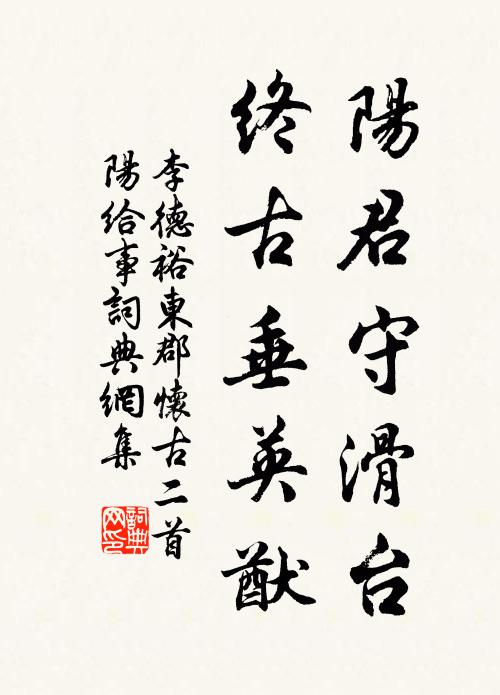 陽君守滑台
終古垂英猷
李德裕東郡懷古二首
陽給事詞典網集
詞典网印